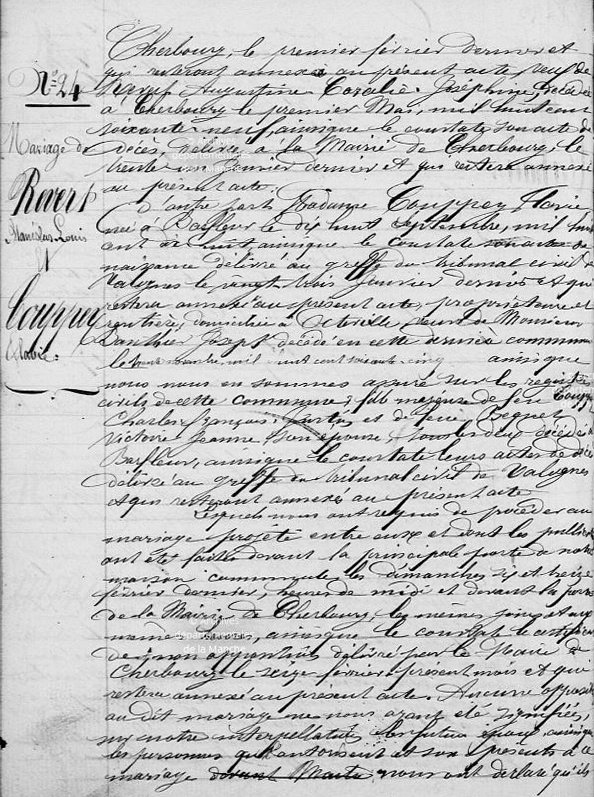 Nº 24
Mariage de
Revert
Stanislas Louis
et
Couppey
Flavie.
Cherbourg, le premier février dernier et
qui resteront annexés au présent acte, veuf de
Augustine Coralie Joséphine, décédée
à Cherbourg le premier Mai, mil huit cent
soixante neuf, ainsi que le constate son acte de
décès, délivré à la Mairie de Cherbourg, le
trente un janvier dernier et qui restera annexé
au présent acte.
D'autre part Madame Couppey, Flavie
née à Barfleur le dix huit septembre, mil huit
cent ainsi que le constate son acte de
naissance délivré au greffe du tribunal civil de
Valognes le vingt trois janvier dernier et qui
restera annexé au présent acte, propriétaire et
rentière, domiciliée à veuve de Monsieur
Joseph décédé en cette dernière commune
le mil huit cent soixante cinq ainsi que
nous nous en sommes assuré sur les registres
civils de cette commune; fille majeure de feu Couppey
Charles François, et de feue
Victoire Jeanne, son épouse, tous les deux décédés à
Barfleur, ainsi que le constate leurs actes de décès
délivrés au greffe du tribunal civil de Valognes
et qui resteront annexés au présent acte
Lesquels nous ont requis de procéder au
mariage projeté entre eux et dont les publications
ont été faites devant la principale porte de notre
maison commune les dimanches six et treize
février dernier, heures de midi et devant la porte
de la Mairie de Cherbourg, les mêmes jours et aux
mêmes heures, ainsi que le constate le certificat
de non opposition délivré par le Maire de
Cherbourg le seize février présent mois et qui
restera annexé au présent acte. Aucune opposition
au dit mariage ne nous ayant été signifiée,
ny notre interpellation les futurs époux, ainsi que
les personnes qui autorisent et sont présents à ce
mariage nous ont déclaré qu'ils
départementales
de la Manche